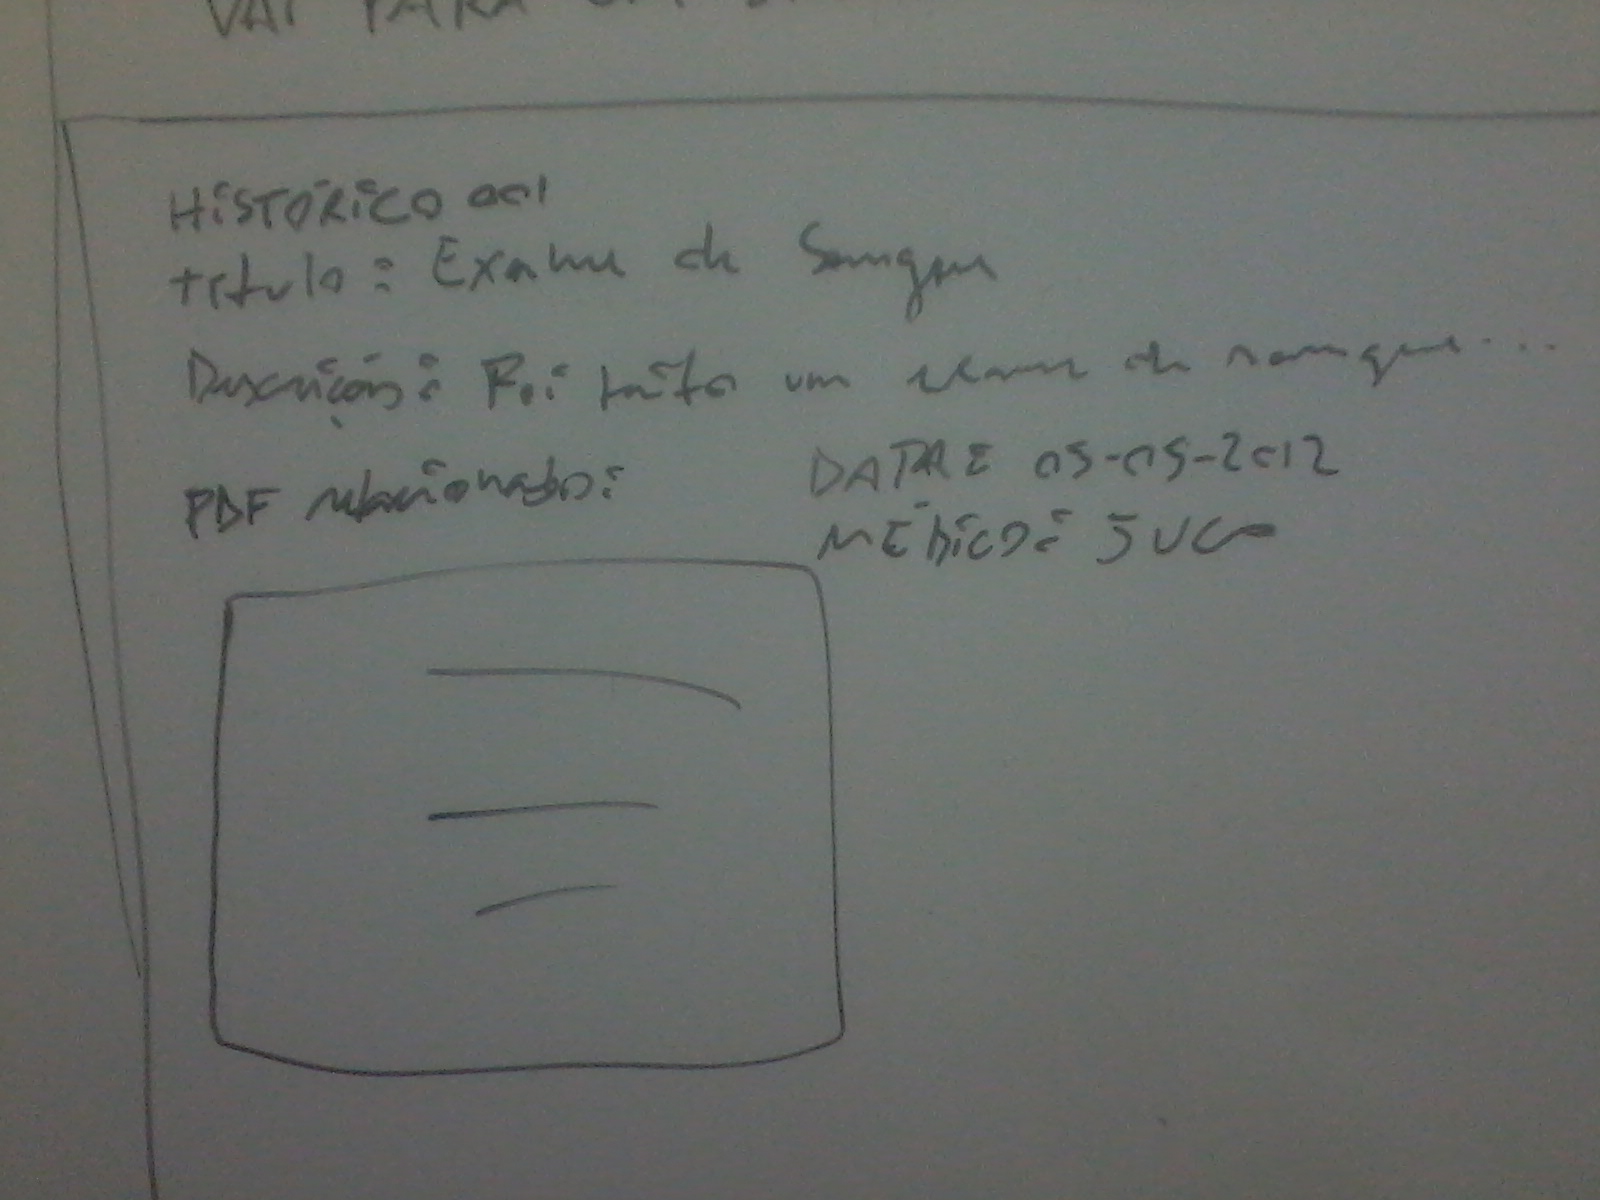 VAI PARA
HISTÓRICO 001
título: Exame de Sangue
Descrição: Foi feito um exame de sangue...
PDF relacionado:
DATA: 05-05-2012
MÉDICO: